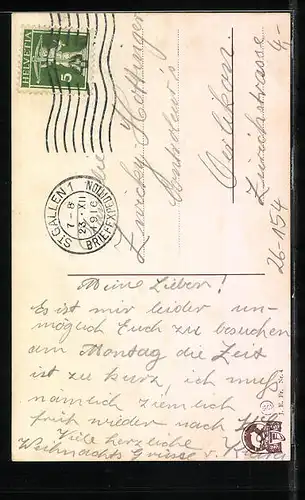 HELVETIA
5
ST. GALLEN 1
7-8
23. XII
1916
BRIEFEXPEDITION
Zwicky Hottinger
Conditorei
Oerlikon
Zürichstrasse
4,-
26-154
Meine Lieben!
Es ist mir leider un-
möglich Euch zu besuchen
am Montag die Zeit
ist zu kurz, ich muß
nämlich ziemlich
früh wieder nach
Viele herzliche
Weihnachts Grüsse v.
J. E. Fr. Nr. 4